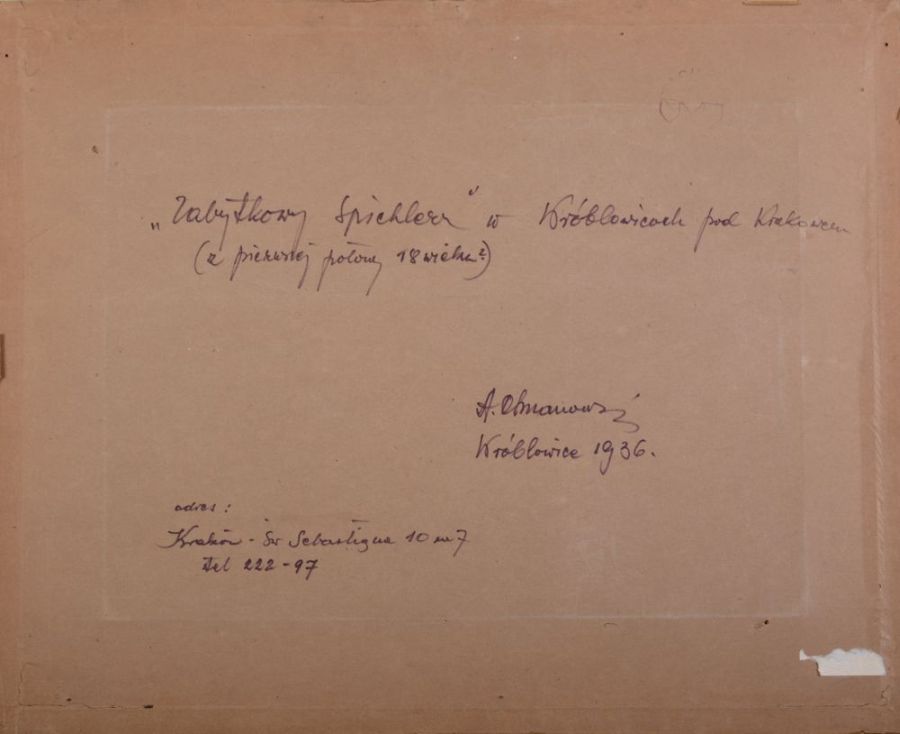 „Zabytkowy Spichlerz" w Króblowicach pod Krakowem
(z pierwszej połowy 18 wieku?)
A. Obmanowski
Króblowice 1936.
adres:
Kraków - Św Sebastjana 10 m 7
tel 222-97